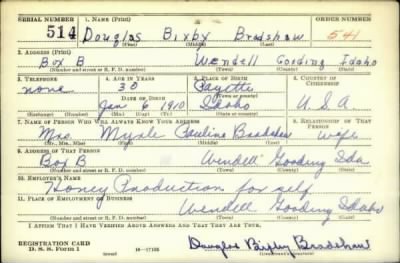 SERIAL NUMBER 1. NAME (Print) ORDER NUMBER
514 Douglas Bixby Bradshaw 541
(First) (Middle) (Last)
2. ADDRESS (Print)
Box B Wendell Gooding Idaho
(Number and street or R. F. D. number) (Town) (County) (State)
3. TELEPHONE 4. AGE IN YEARS 5. PLACE OF BIRTH 6. COUNTRY OF CITIZENSHIP
none 30 Payette
DATE OF BIRTH
Jan 6 1910 Idaho U.S.A.
(Mo.) (Day) (Yr.) (State or country)
7. NAME OF PERSON WHO WILL ALWAYS KNOW YOUR ADDRESS 8. RELATIONSHIP OF THAT PERSON
Mrs. Pauline Bradshaw wife
(Mr., Mrs., Miss) (First) (Middle) (Last)
9. ADDRESS OF THAT PERSON
Box B Wendell Gooding Ida
(Number and street or R. F. D. number) (Town) (County) (State)
10. EMPLOYER'S NAME
Honey Production for self
11. PLACE OF EMPLOYMENT OR BUSINESS
Wendell Gooding Idaho
(Number and street or R. F. D. number) (Town) (County) (State)
I AFFIRM THAT I HAVE VERIFIED ABOVE ANSWERS AND THAT THEY ARE TRUE.
REGISTRATION CARD
D. S. S. Form 1 16-17105 Douglas Bixby Bradshaw
(Registrant's signature)